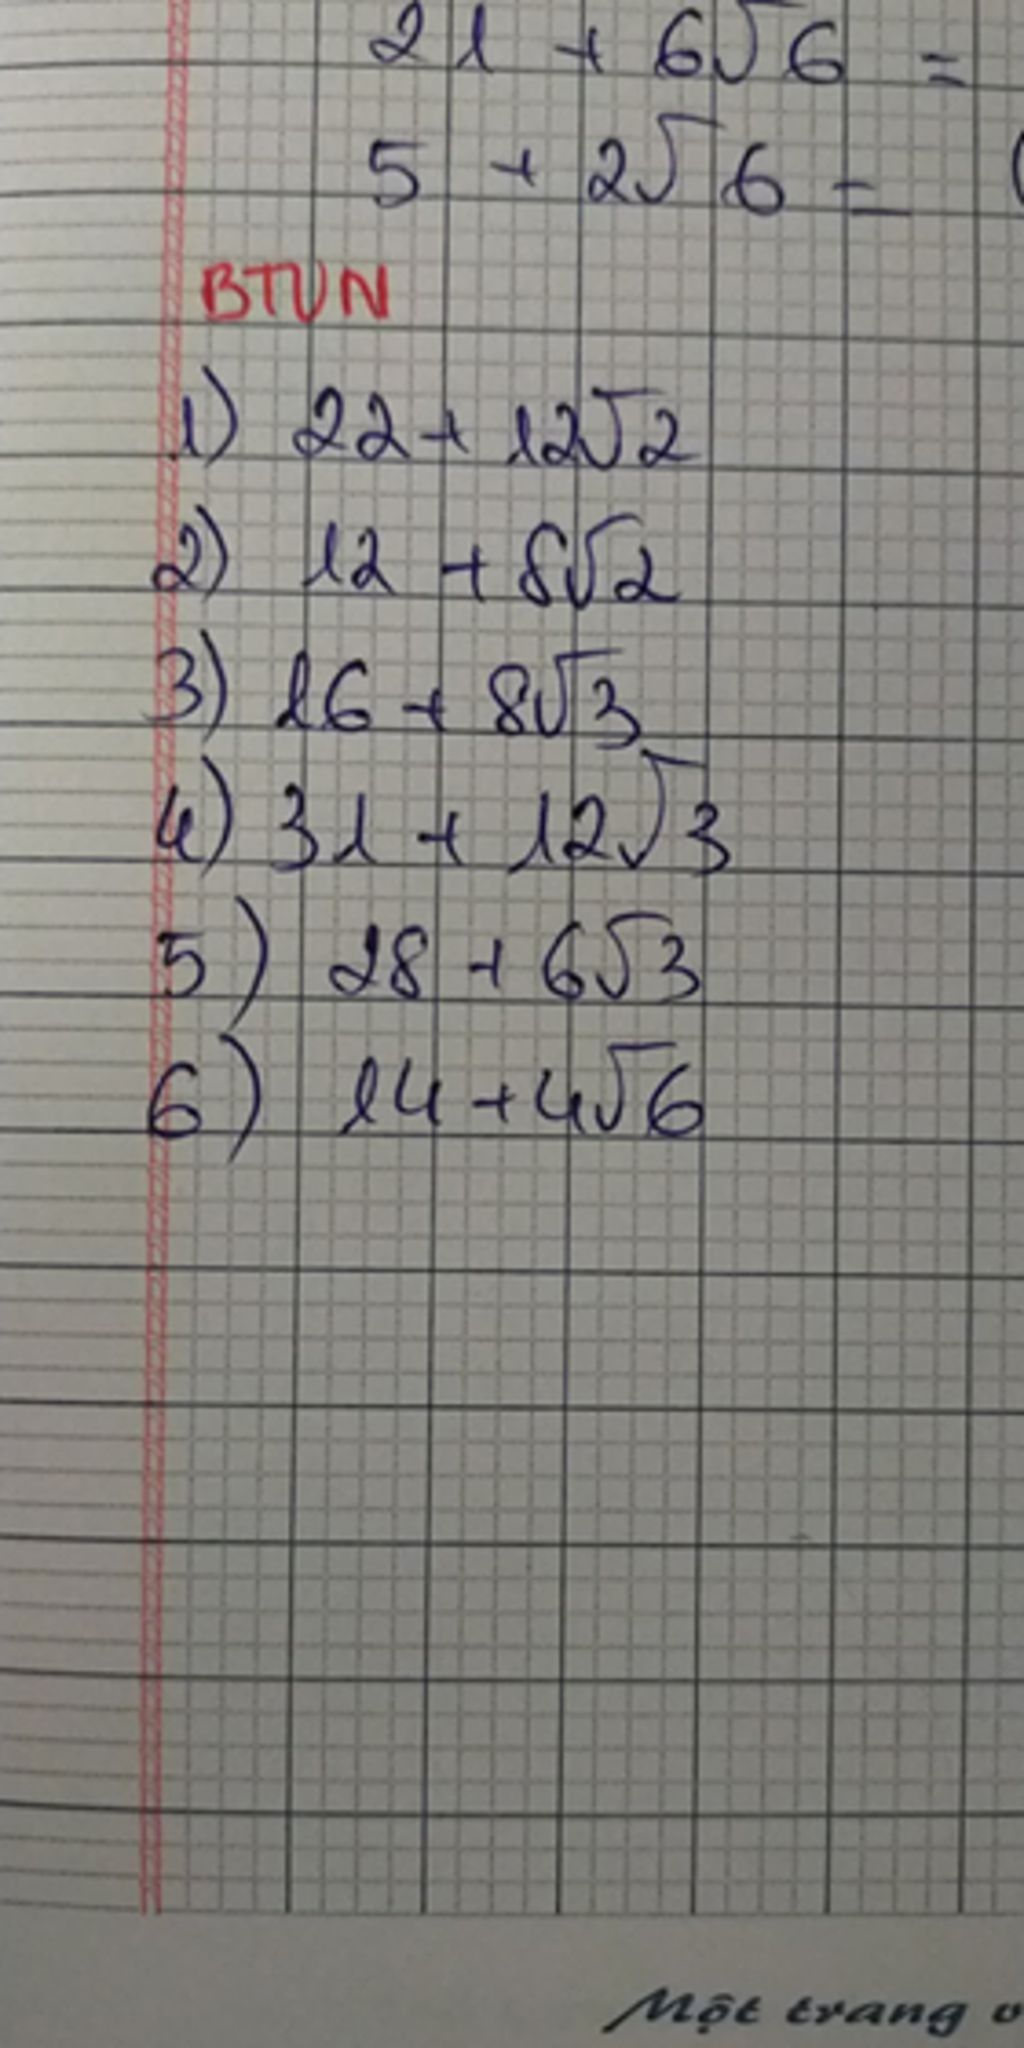 21 + 6√6 =
5 + 2√6 = (
BTVN
1) 22 + 12√2
2) 12 + 8√2
3) 16 + 8√3
4) 31 + 12√3
5) 28 + 6√3
6) 14 + 4√6
Một trang v